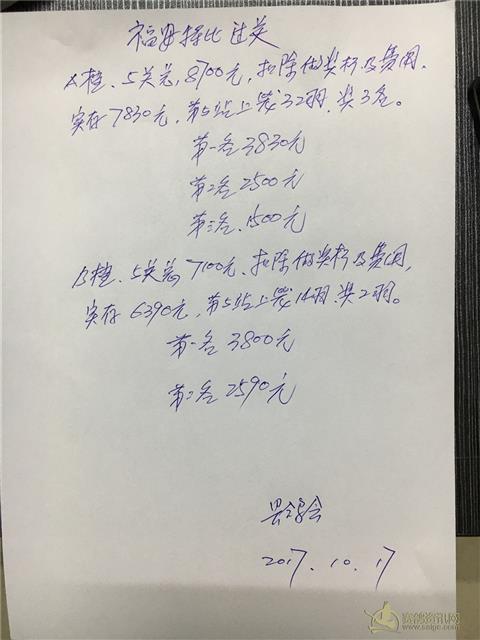 福娃择比过关
A档、5关总8700元,扣除做奖杯及费用,
实存7830元,第5站上笼32羽,奖3名。
第一名3830元
第2名2500元
第三名、1500元
B档、5关总7100元、扣除做奖杯及费用,
实存6390元,第5站上笼14羽、奖2羽。
第一名3800元
第二名2590元
2017.10.17
赛鸽资讯网
www.saige.com